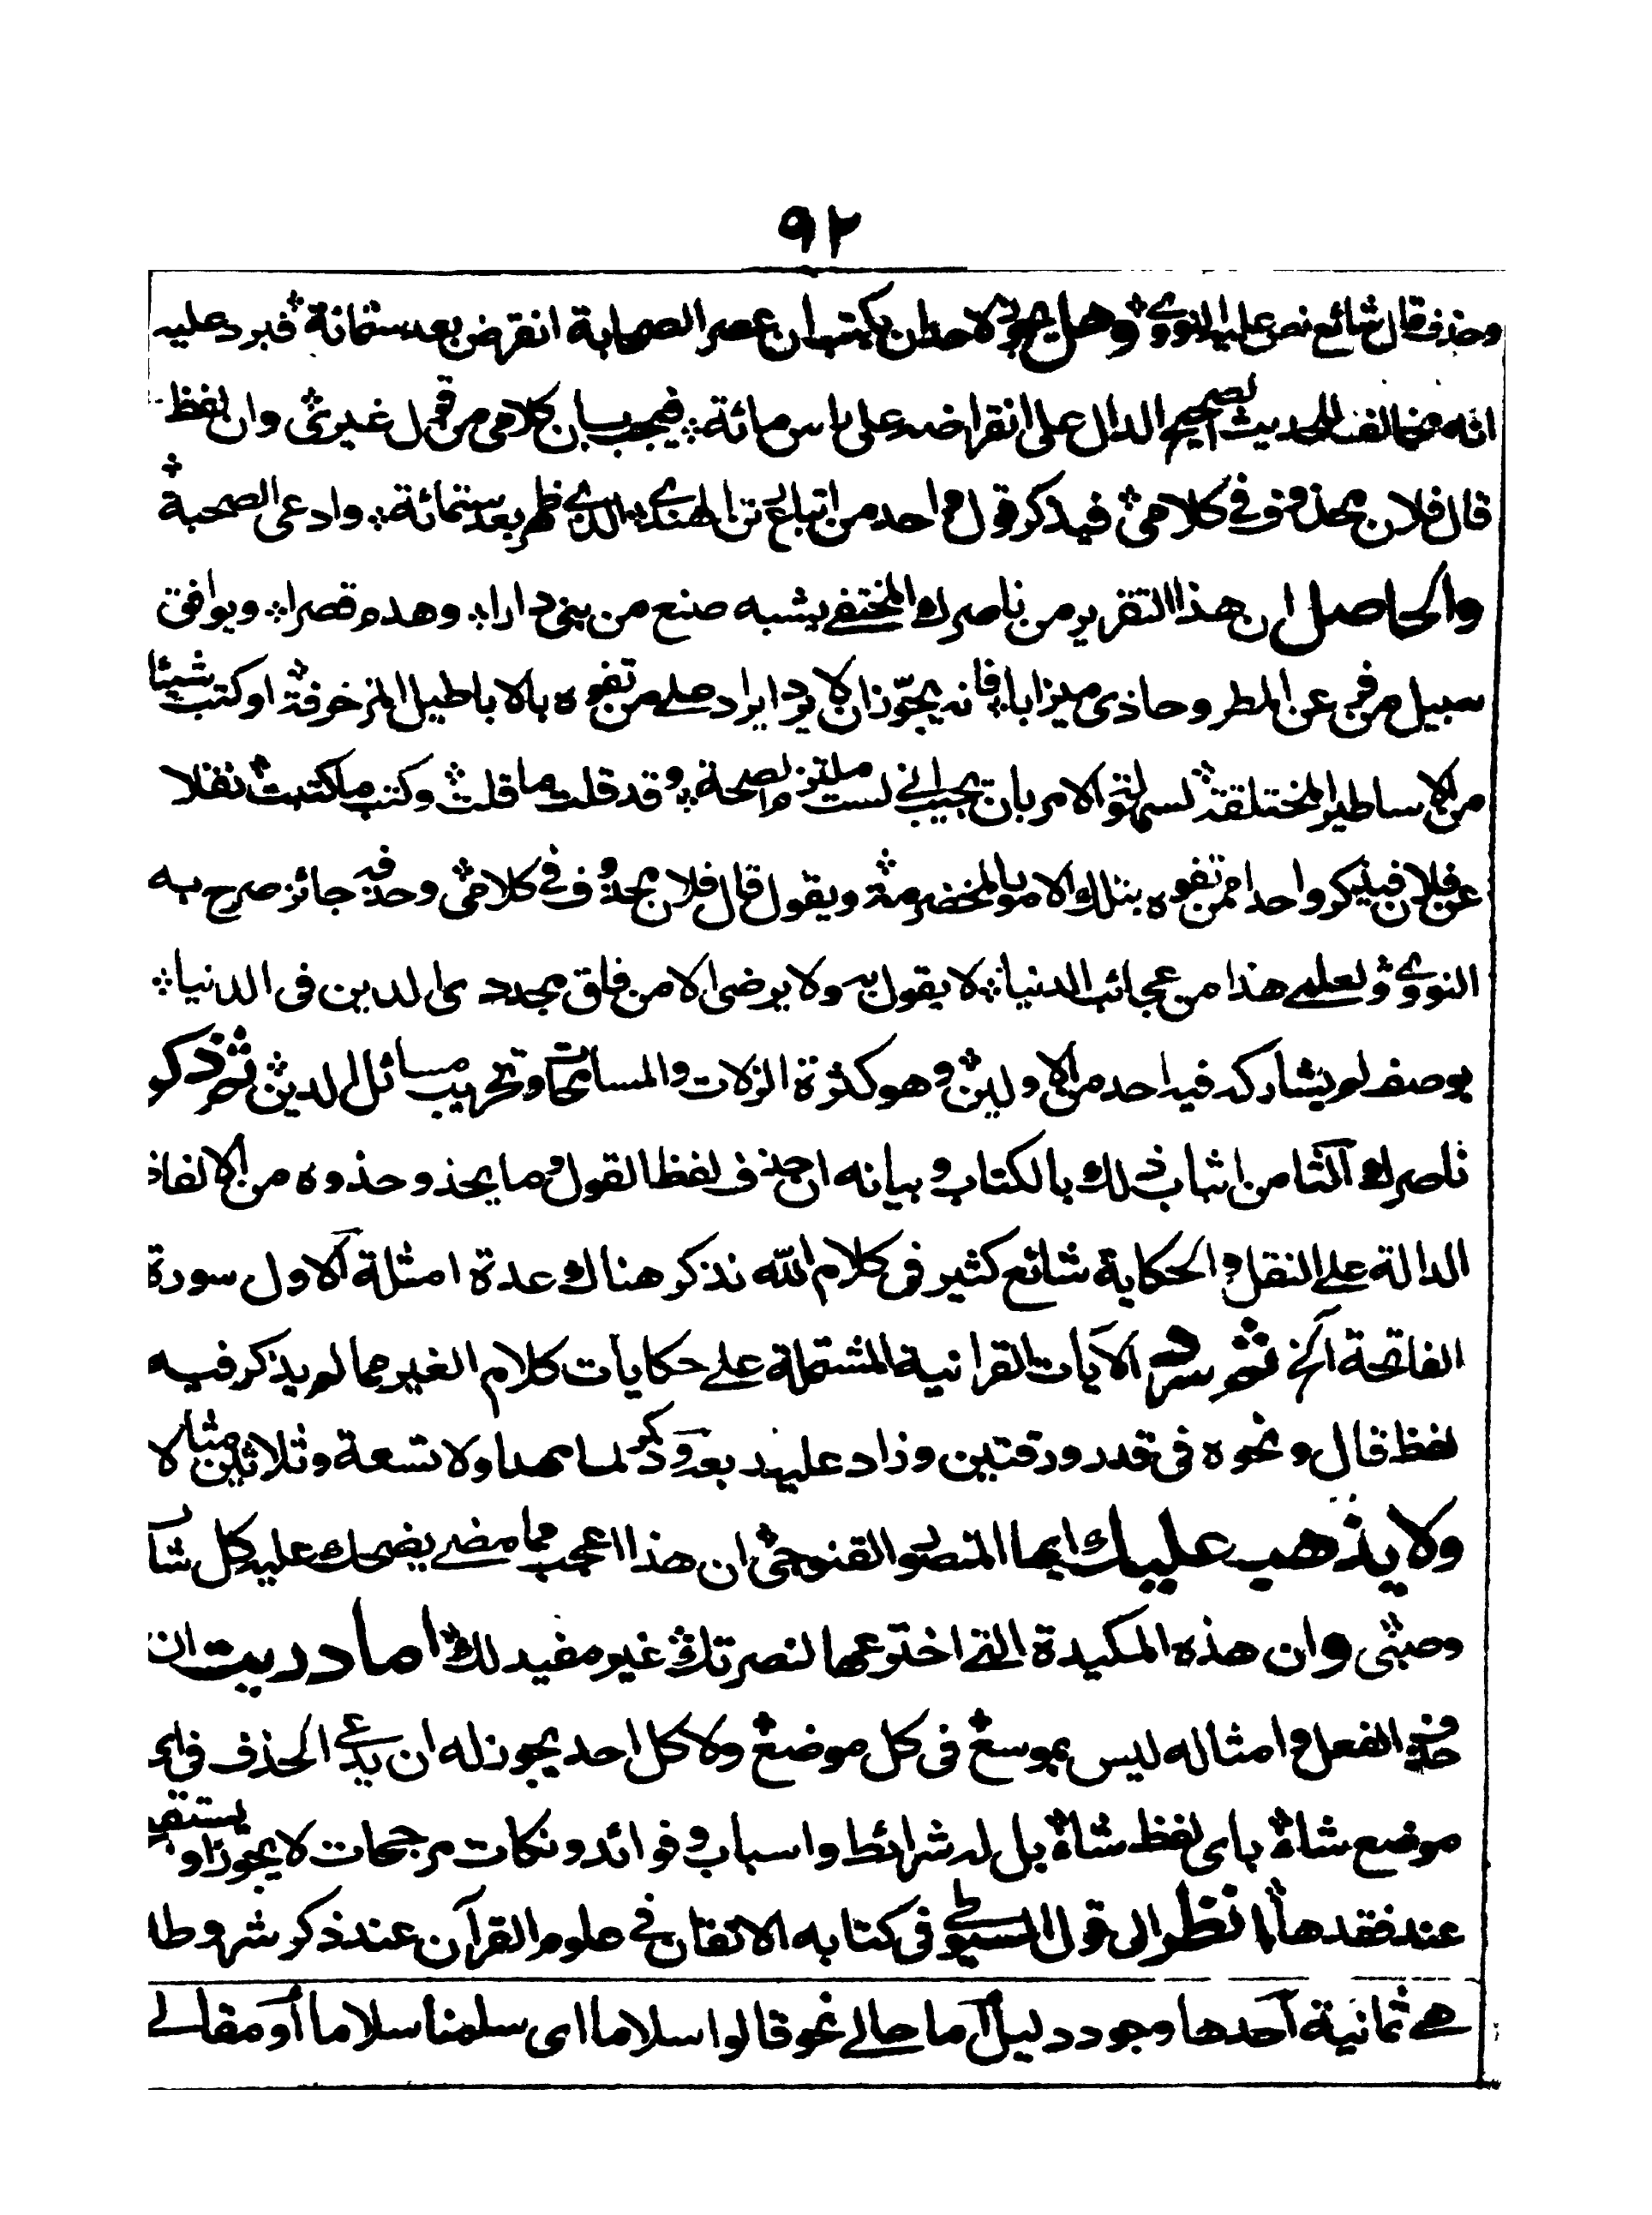 ٩٢
وحذف قال شائع نص عليه النووي ؞ وهل يجوز لاحد ان يكتب ان عصر الصحابة انقرض بعد ستمائة ؞ فيرد عليه
انه مخالف للحديث الصحيح الدال على انقراضه على راس مائة ؞ فيجيب بان كلامى من قول غيرى ؞ وان لفظ
قال فلان محذوف في كلامى ؞ فيذكر قول واحد من اتباع رتن الهندي ؞ الذي ظهر بعد ستمائة ؞ وادعى الصحبة ؞
والحاصل ان هذا التقرير من ناصرك المختفي يشبه صنع من بنى دارا ؞ وهدم قصرا ؞ ويوافق
سبيل من فر عن المطر وحاذى ميزابا ؞ فانه يجوّز ان لا يرد ايراد على من تفوه بالاباطيل المزخرفة ؞ او كتب شيئا
من الاساطير المختلقة ؞ لسهولة الامر بان يجيب اني لست ملتزم الصحة ؞ وقد قلت ما قلت ؞ وكتبت ما كتبت ؞ نقلا
عن فلان فيذكر واحدا ممن تفوه بتلك الامور المخضرمة ؞ ويقول قال فلان محذوف في كلامى ؞ وحذفه جائز صرح به
النووي ؞ ولعلي هذا من عجائب الدنيا ؞ لا يقول به ولا يرضى الا من فاق مجددى الدين فى الدنيا ؞
بوصف لم يشاركه فيه احد من الاولين ؞ وهو كثرة الزلات والمسامحات وتخريب مسائل الدين ؞ ثم ذكر
ناصرك الثامن اثبات ذلك بالكتاب وبيانه ان حذف لفظ القول وما يحذو حذوه من الالفاظ
الدالة على النقل والحكاية شائع كثير فى كلام الله نذكر هناك عدة امثلة الاول سورة
الفاتحة الخ ثم سرد الآيات القرانية المشتملة على حكايات كلام الغير مما لم يذكر فيه
لفظ قال ونحوه فى قدر ورقتين وزاد عليه بعد ذكر تسعة وثلاثين مثالا
ولا يذهب عليك ايها المنصور القنوجى ؞ ان هذا اعجب مما مضى يضحك عليه كل شاب
وصبى ؞ وان هذه المكيدة التي اخترعها لنصرتك ؞ غير مفيد لك ؞ اما دريت ان
حذف الفعل وامثاله ليس بموسع ؞ فى كل موضع ؞ ولا كل احد يجوز له ان يدعي الحذف في اى
موضع شاء ؞ باى لفظ شاء ؞ بل له شرائط واسباب وفوائد ونكات مرجحات لا يجوز او يستقبح
عند فقدها ؞ انظر الى قول السيوطي فى كتابه الاتقان في علوم القرآن عند ذكر شروط
هي ثمانية احدها وجود دليل اما حالي نحو قالوا سلاما اى سلمنا سلاما او مقالي